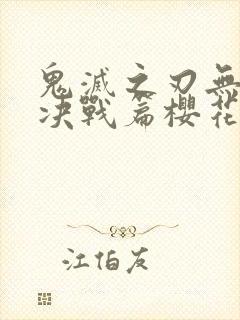 鬼滅之刃無
决戰篇櫻花
江伯友